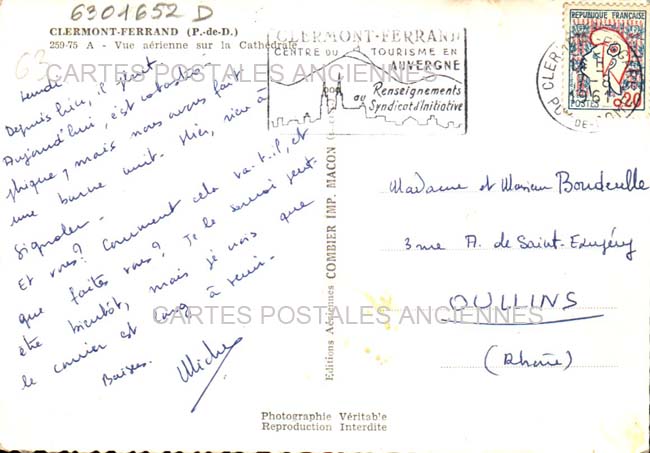 6301652 D
CLERMONT-FERRAND (P.-de-D.)
259-75 A - Vue aérienne sur la Cathédrale
63
CARTES POSTALES ANCIENNES
Lundi
Depuis hier, il pleut
Aujourd'hui, c'est catastro-
phique, mais nous avons fait
une bonne nuit. Hier, rien à
signaler.
Et vous? Comment cela va-t-il, et
que faites vous? Je le saurai peut-
être bientôt, mais je vois que
le courrier est long à venir.
Baisers.
CLERMONT-FERRAND
CENTRE DU TOURISME EN
AUVERGNE
Renseignements
au Syndicat d'Initiative
REPUBLIQUE FRANÇAISE
POSTES
0,20
1961
PUY-DE-DOME
Editions Aériennes COMBIER IMP. MACON
Madame et Monsieur
3 rue A. de Saint-Exupéry
OULLINS
(Rhône)
CARTES POSTALES ANCIENNES
Photographie Véritable
Reproduction Interdite